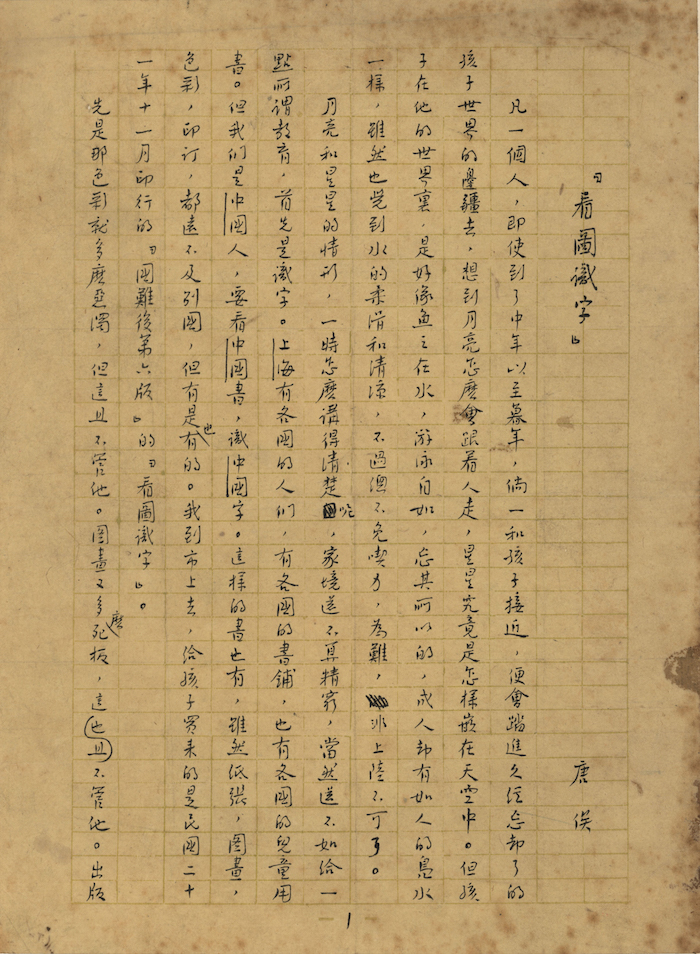 「看圖識字」
唐俟
凡一個人，即使到了中年以至暮年，倘一和孩子接近，便會踏進久經忘却了的
孩子世界的邊疆去，想到月亮怎麽會跟着人走，星星究竟是怎樣嵌在天空中。但孩
子在他的世界裏，是好像魚之在水，游泳自如，忘其所以的，成人却有如人的鳧水
一樣，雖然也覺到水的柔滑和清涼，不過總不免喫力，為難，非上陸不可了。
月亮和星星的情形，一時怎麽講得清楚呢，家境還不算精窮，當然還不如給一
點所謂教育，首先是識字。上海有各國的人們，有各國的書鋪，也有各國的兒童用
書。但我們是中國人，要看中國書，識中國字。這樣的書也有，雖然紙張，圖畫，
色彩，印訂，都遠不及別國，但有是也有的。我到市上去，給孩子買來的是民國二十
一年十一月印行的「國難後第六版」的「看圖識字」。
先是那色彩就多麽惡濁，但這且不管他。圖畫又多麽死板，這也且不管他。出版
1